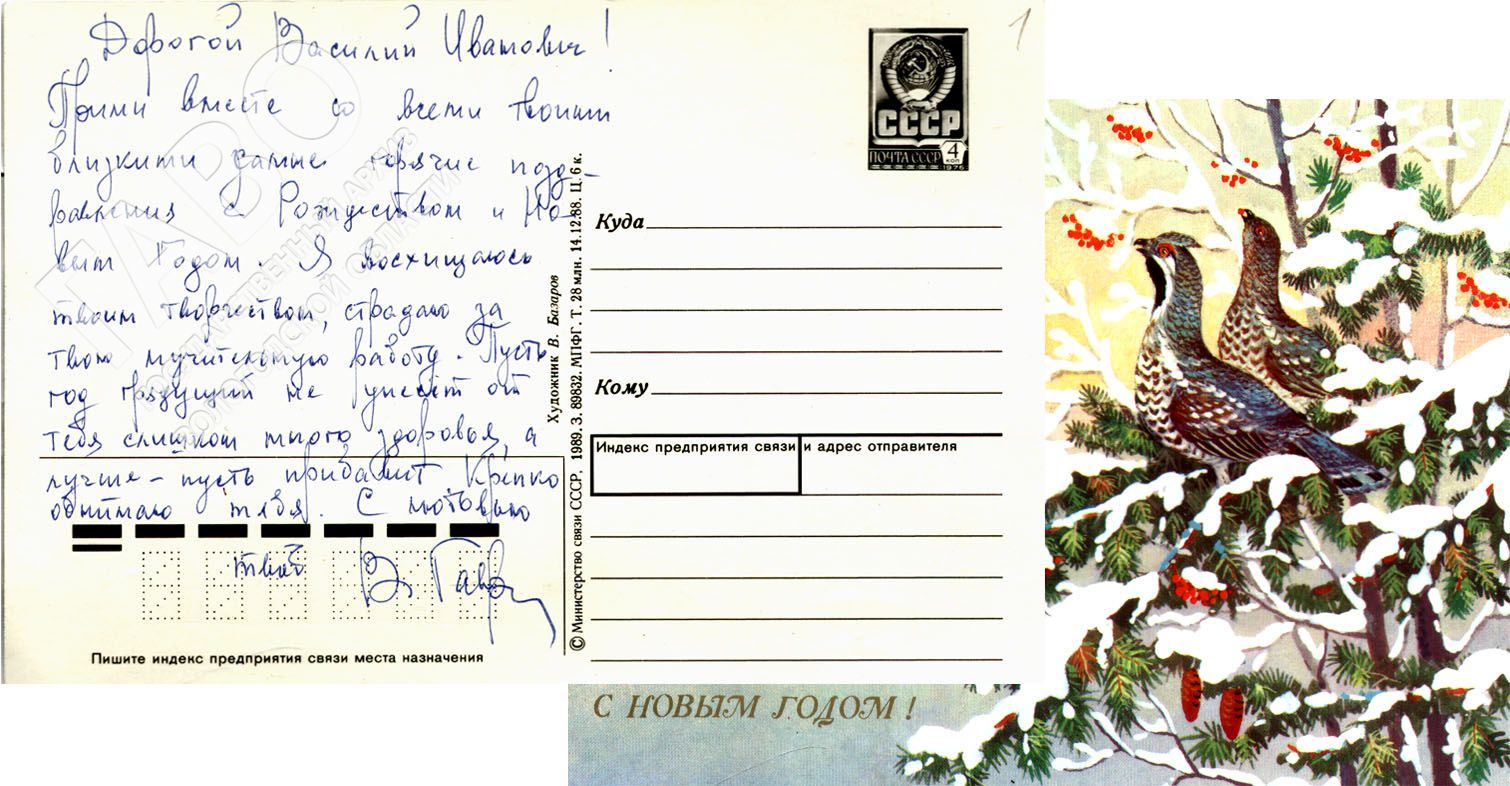 Дорогой Василий Иванович!
Прими вместе со всеми твоими
близкими самые горячие позд-
равления с Рождеством и Но-
вым Годом. Я восхищаюсь
твоим творчеством, страдаю за
твою мучительную работу. Пусть
год грядущий не унесёт от
тебя слишком много здоровья, а
лучше - пусть прибавит. Крепко
обнимаю тебя. С любовью
твой В. Гавр
Пишите индекс предприятия связи места назначения
Художник В. Базаров
© Министерство связи СССР. 1989. З. 89832. МПФГ. Т. 28 млн. 14.12.88. Ц. 6 к.
1
СССР
ПОЧТА СССР 4 КОП
1976
Куда
Кому
Индекс предприятия связи и адрес отправителя
ГАВО
ГОСУДАРСТВЕННЫЙ АРХИВ
ВОЛОГОДСКОЙ ОБЛАСТИ
С НОВЫМ ГОДОМ!